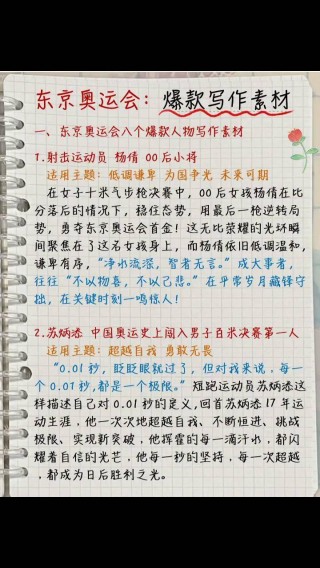 东京奥运会：爆款写作素材
一、东京奥运会八个爆款人物写作素材
1.射击运动员 杨倩 00后小将
适用主题：低调谦卑 为国争光 未来可期
在女子十米气步枪决赛中，00后女孩杨倩在比
分落后的情况下，稳住态势，用最后一枪逆转局
势，勇夺东京奥运会首金！这无比荣耀的光环瞬
间聚焦在了这名女孩身上，而杨倩依旧低调温和，
谦卑有序，“净水流深，智者无言。”成大事者，
往往“不以物喜，不以己悲。”在平常岁月藏锋守
拙，在关键时刻一鸣惊人！
2.苏炳添 中国奥运史上闯入男子百米决赛第一人
适用主题：超越自我 勇敢无畏
“0.01秒，眨眨眼就过了，但对我来说，每一
个0.01秒，都是一个极限。”短跑运动员苏炳添这
样描述自己对0.01秒的定义，回首苏炳添17年运
动生涯，他一次次地超越自我、不断恒进、挑战
极限、实现新突破，他挥霍的每一滴汗水，都闪
耀着自信的光芒，他每一秒的坚持，每一次超越
，都成为日后胜利之光。